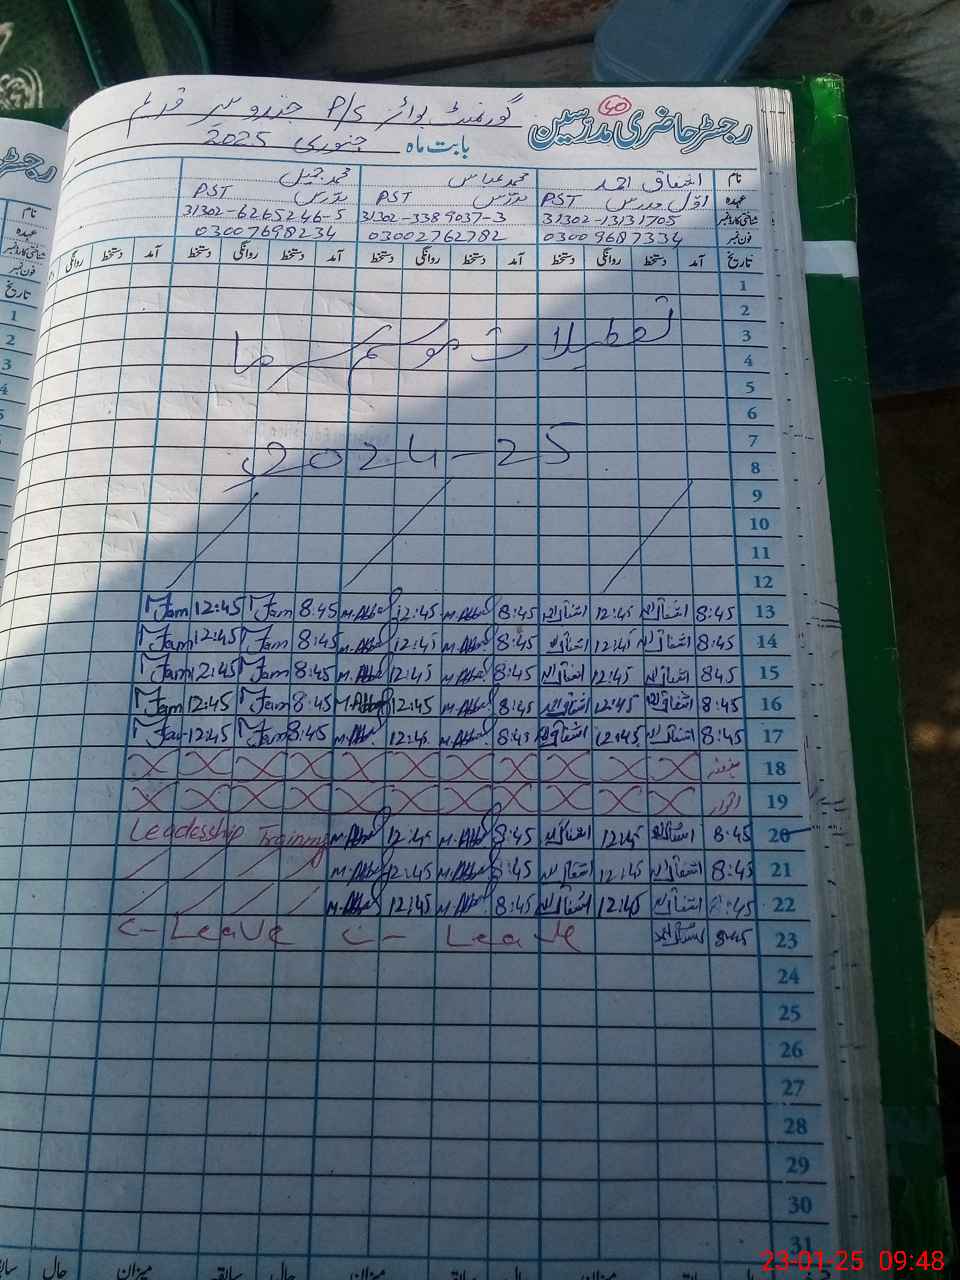 رجسٹر حاضری مدرسین
40
گورنمنٹ بوائز P/S
بابت ماہ جنوری 2025
نام اشفاق احمد محمد عباس محمد جمیل
عہدہ اول مدرس PST مدرس PST مدرس PST
شناختی کارڈ نمبر 31302-13131705 31302-3389037-3 31302-6265246-5
فون نمبر 03009687334 03002762782 03007698234
تاریخ آمد دستخط روانگی دستخط آمد دستخط روانگی دستخط آمد دستخط روانگی دستخط
1
2
3 تعطیلات موسم سرما
4
5
6
7
8 2024-25
9
10
11
12
13 8:45 اشفاق احمد 12:45 اشفاق احمد 8:45 M.Abbas 12:45 M.Abbas 8:45 MJam 12:45 MJam
14 8:45 اشفاق احمد 12:45 اشفاق احمد 8:45 M.Abbas 12:45 M.Abbas 8:45 MJam 12:45 MJam
15 845 اشفاق احمد 12:45 اشفاق احمد 8:45 M.Abbas 12:45 M.Abbas 8:45 MJam 12:45 MJam
16 8:45 اشفاق احمد 12:45 اشفاق احمد 8:45 M.Abbas 12:45 M.Abbas 8:45 MJam 12:45 MJam
17 8:45 اشفاق احمد 12:45 اشفاق احمد 8:45 M.Abbas 12:45 M.Abbas 8:45 MJam 12:45 MJam
18 ہفتہ
19 اتوار
20 8:45 اشفاق احمد 12:45 اشفاق احمد 8:45 M.Abbas 12:45 M.Abbas Leadership Training
21 8:45 اشفاق احمد 12:45 اشفاق احمد 8:45 M.Abbas 12:45 M.Abbas
22 8:45 اشفاق احمد 12:45 اشفاق احمد 8:45 M.Abbas 12:45 M.Abbas
23 8:45 اشفاق احمد C- Leave C- Leave
24
25
26
27
28
29
30
31
میزان حال سابقہ میزان حال سابقہ میزان
نام
عہدہ
شناختی کارڈ نمبر
فون نمبر
تاریخ
1
2
3
4
23-01-25 09:48